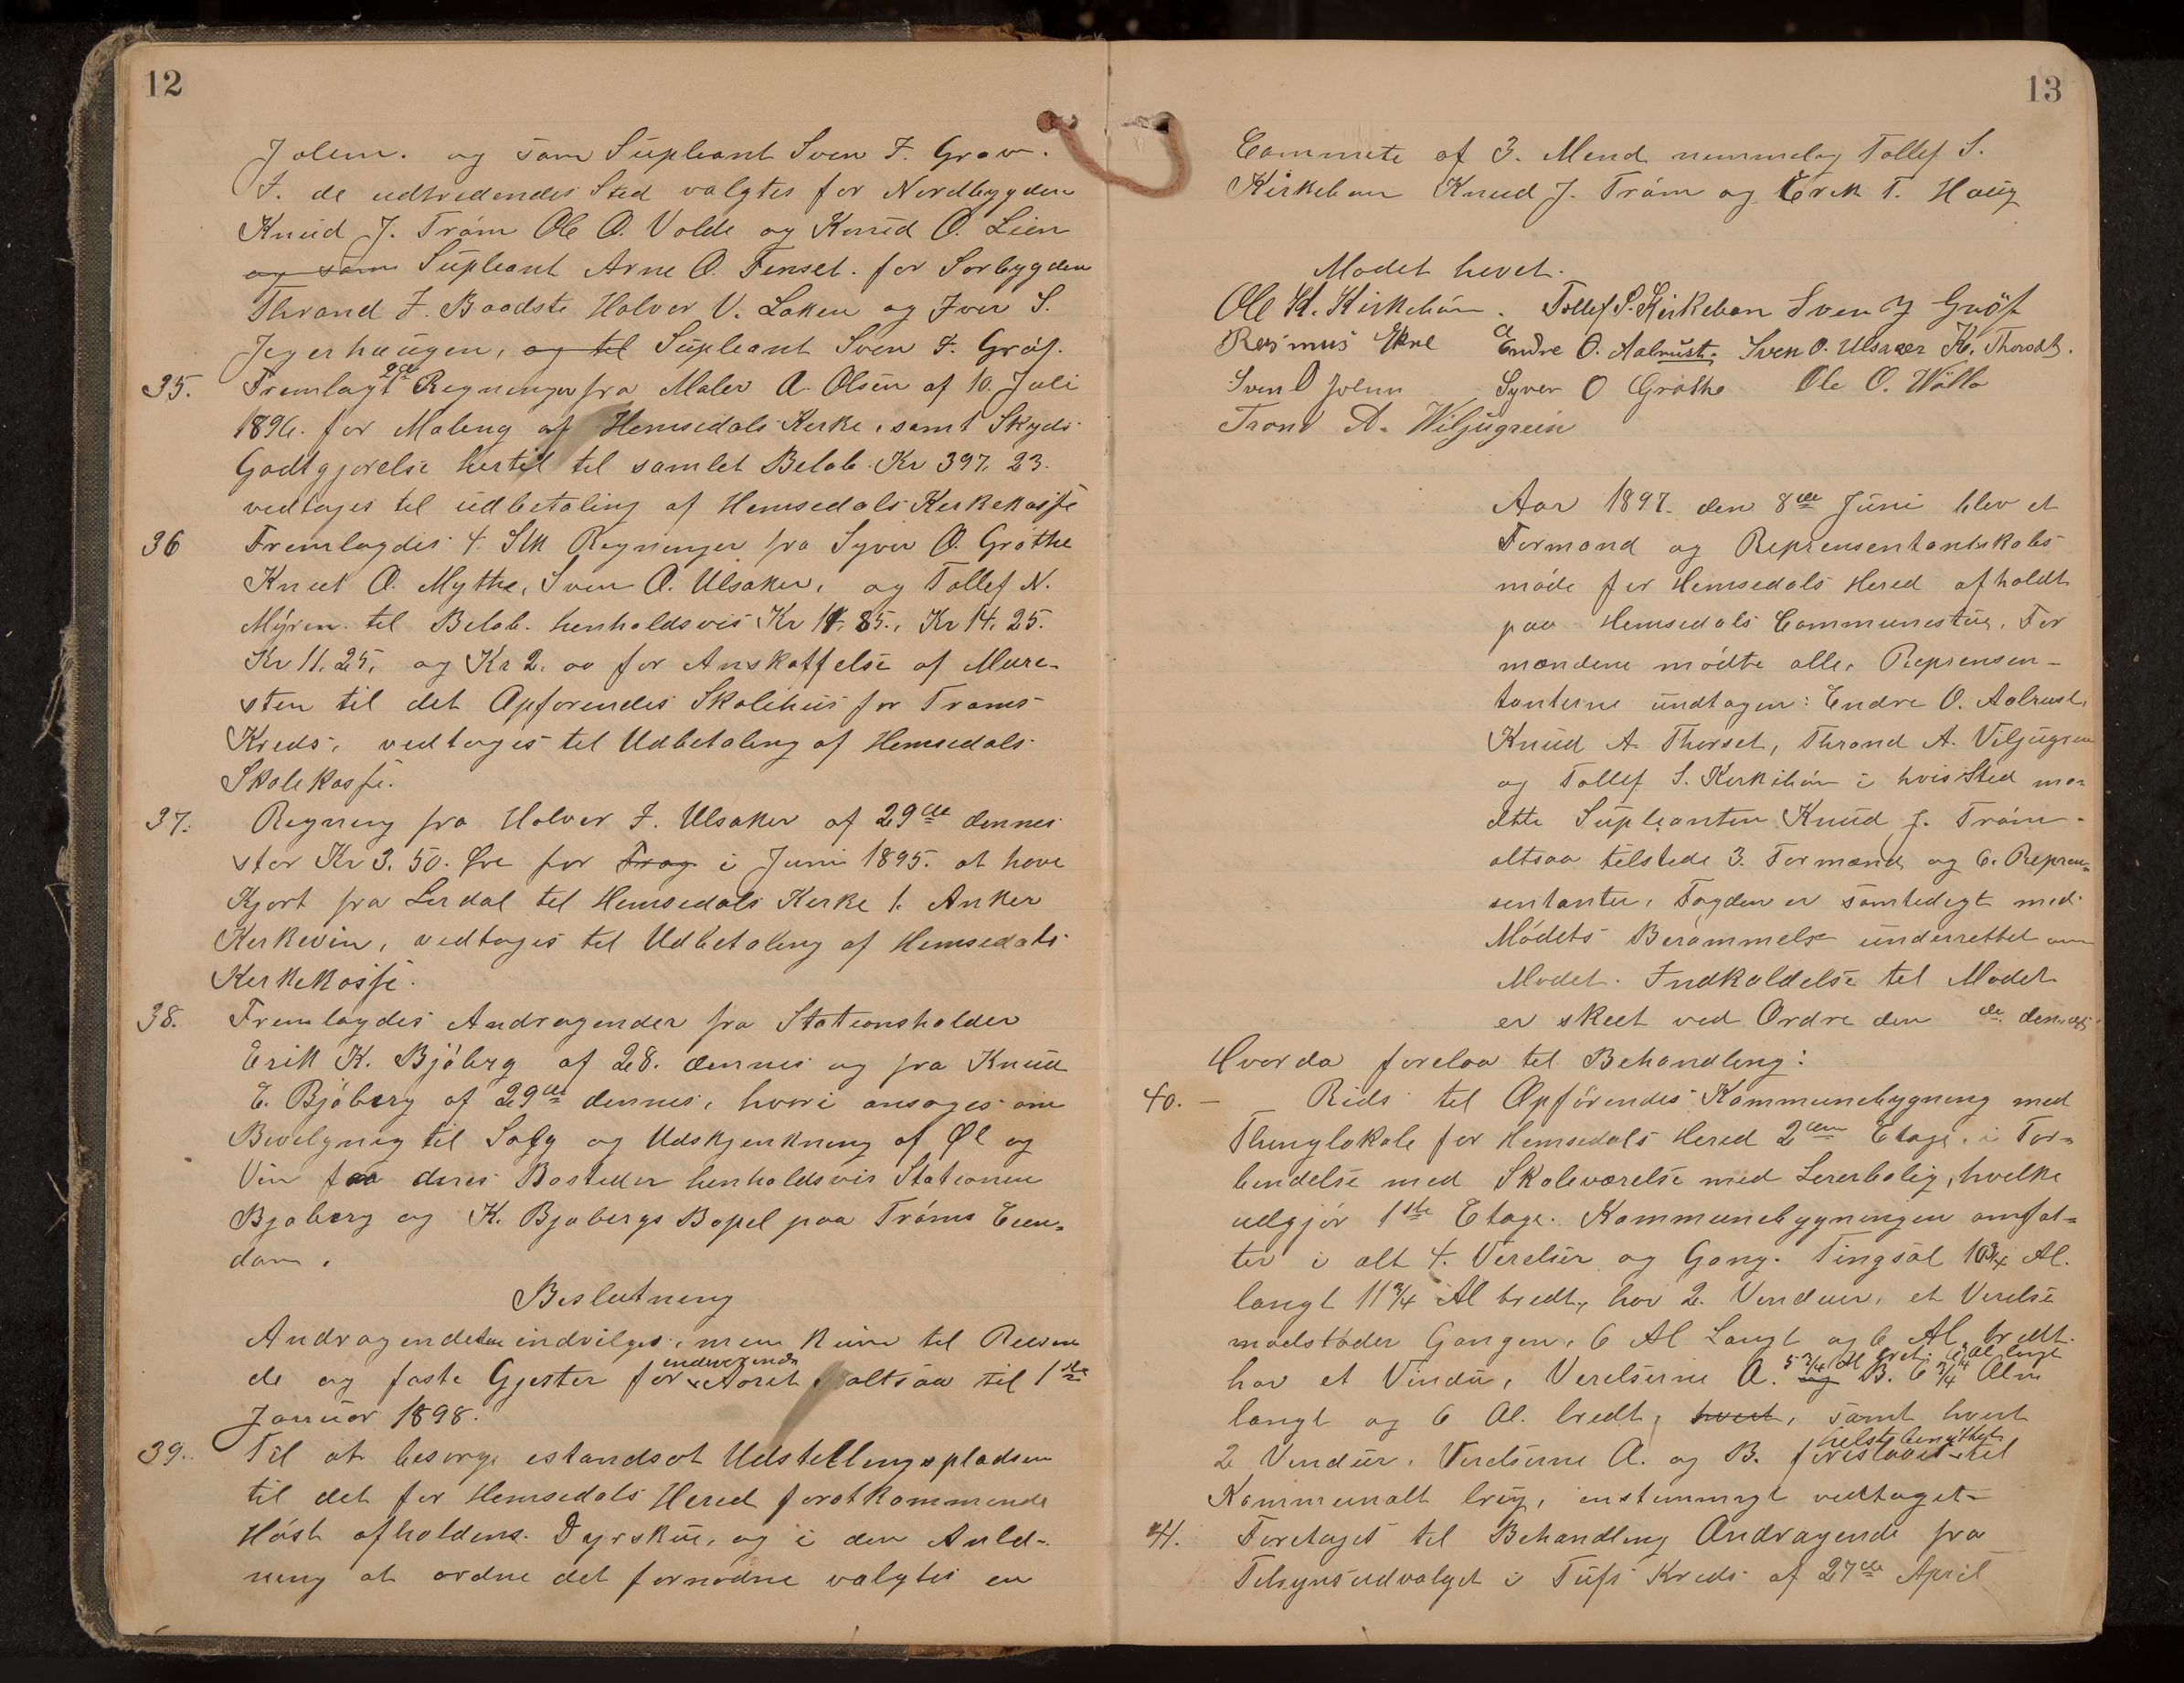 12
Jolem. og som Supleant Sven I. Grøv.
I. de udtredendes Sted valgtes for Nordbygden
Knud J. Trøm Ole O. Volde og Knud O. Lien
og som Supleant Arne O. Finset. for Sørbygden
Thrand I. Baadste Halvor V. Løken og Iver S.
Jegerhaugen, og til Supleant Sven I. Grøf.
35. Fremlagt 2de Regninger fra Maler A. Olsen af 10. Juli
1896. for Maling af Hemsedals Kirke, samt Skyds
Godtgjørelse hertil til samlet Beløb Kr 397, 23.
vedtoges til udbetaling af Hemsedals Kerkekasse
36 Fremlagdes 4. Stk Regninger fra Syver O. Grøthe
Knut O. Mythe, Sven O. Ulsaker, og Tollef N.
Mýren. til Beløb. henholdsvis Kr 11, 85., Kr 14, 25.
Kr 11, 25, og Kr 2, oo for Anskaffelse af Mure-
sten til det Opførendes Skolehus for Trøms
Kreds, vedtoges til Udbetaling af Hemsedals
Skolekasse.
37. Regning fra Halvor I. Ulsaker af 29de dennes
stor Kr 3, 50. Øre for Frag i Juni 1895. at have
Kjørt fra Lerdal til Hemsedals Kerke 1. Anker
Kerkevin, vedtoges til Udbetaling af Hemsedals
Kerkekasse.
38. Fremlagdes Andragender fra Stationsholder
Erik K. Bjøberg af 28. dennes og fra Knud
E. Bjøberg af 29de dennes, hvori ansøges om
Bevilgning til Salg og Udskjenkning af Øl og
Vin paa deres Bosteder henholdsvis Stationen
Bjøberg og K. Bjøbergs Bopel paa Trøms Eien-
dom.
Beslutning
Andragendeten indvilges, men kuns til Reisen
de og faste Gjester for indeværende Aaret altsaa til 1ste
Januar 1898.
39. Til at besørge istandsat Udstellingspladsen
til det for Hemsedals Hered førstkommende
Høst afholdens Dyrskue, og i den Anled-
ning at ordne det fornødne valgtes en
13
Commite af 3. Mend nemmelig Tollef S.
Kirkebøen Knud J. Trøm og Erek T. Haug
Mødet hevet.
Ole K. Kirkebøen. Tollef S. Kirkebøn Sven I Grøf
Rasmus Ekre Endre O. Aalrust. Sven O. Ulsaker K. Thorset.
Sven O Jolen Syver O Grøthe Ole O. Wøllo
Trond A. Wiljugrein
Aar 1897. den 8de Juni blev et
Formand og Reprensentantskabs
møde for Hemsedals Hered afholdt
paa Hemsedals Communestue. For
mændene mødte alle. Reprensen-
tanterne undtagen: Endre O. Aalrust,
Knud A. Thorset, Thrond A. Viljugrein
og Tollef S. Kerkebøn i hvis Sted mø-
dtte Supleanten Knud J. Trøm.
altsaa tilstede 3. Formænd og 6. Repren-
sentanter. Fogden er samtidigt med
Mødets Berammelse underrettet om
Mødet. Indkaldelse til Mødet
er skeet ved Ordre den de dennes
Hvorda forelaa til Behandling:
40. - Rids til Opførendes Kommunebygning med
Thinglokale for Hemsedals Hered 2den Etage. i For-
bendelse med Skoleværelse med Lererbolig, hvilke
udgjør 1ste Etage. Kommunebygningen omfat-
ter i alt 4. Verelser og Gang. Tingsal 10 3/4 Al.
langt 11 3/4 Al bredt, har 2. Venduer, et Verelse
modstøder Gangen, 6 Al Langt og 6 Al. bredt.
har et Vindu, Verelserne A. 5 3/4 Al bret og B. 6 3/4 Alen
langt og 6 Al. bredt, hvert, samt hvert
2 Venduer. Verelserne A. og B. forestaaes til
Kommunalt brug, enstemmigt vedtaget
41. Foretages til Behandling Andragende fra
Tilsynsudvalget i Tufs Kreds af 27de April